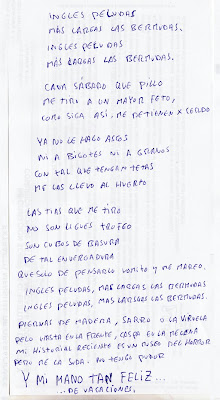 INGLES PELUDAS
MÁS LARGAS LAS BERMUDAS.
INGLES PELUDAS
MÁS LARGAS LAS BERMUDAS.
CADA SÁBADO QUE PILLO
ME TIRO A UN MAYOR FETO,
COMO SIGA ASÍ, ME DETIENEN X CERDO
YA NO LE HAGO ASCOS
NI A BIGOTES NI A GRANOS
CON TAL QUE TENGAN TETAS
ME LAS LLEVO AL HUERTO
LAS TIAS QUE ME TIRO
NO SON LIGUES TROFEO
SON CUBOS DE BASURA
DE TAL ENVERGADURA
QUE SOLO DE PENSARLO VOMITO Y ME MAREO.
INGLES PELUDAS, MAS LARGAS, LAS BERMUDAS
INGLES PELUDAS, MAS LARGAS LAS BERMUDAS.
PIERNAS DE MADERA, SARRO O LA VIRUELA
PELO HASTA EN LA FRENTE, CASPA EN LA MELENA
MI HISTORIAL RECIENTE ES UN MUSEO DEL HORROR
PERO ME LA SUDA. NO TENGO PUDOR
Y MI MANO TAN FELIZ...
...DE VACACIONES.